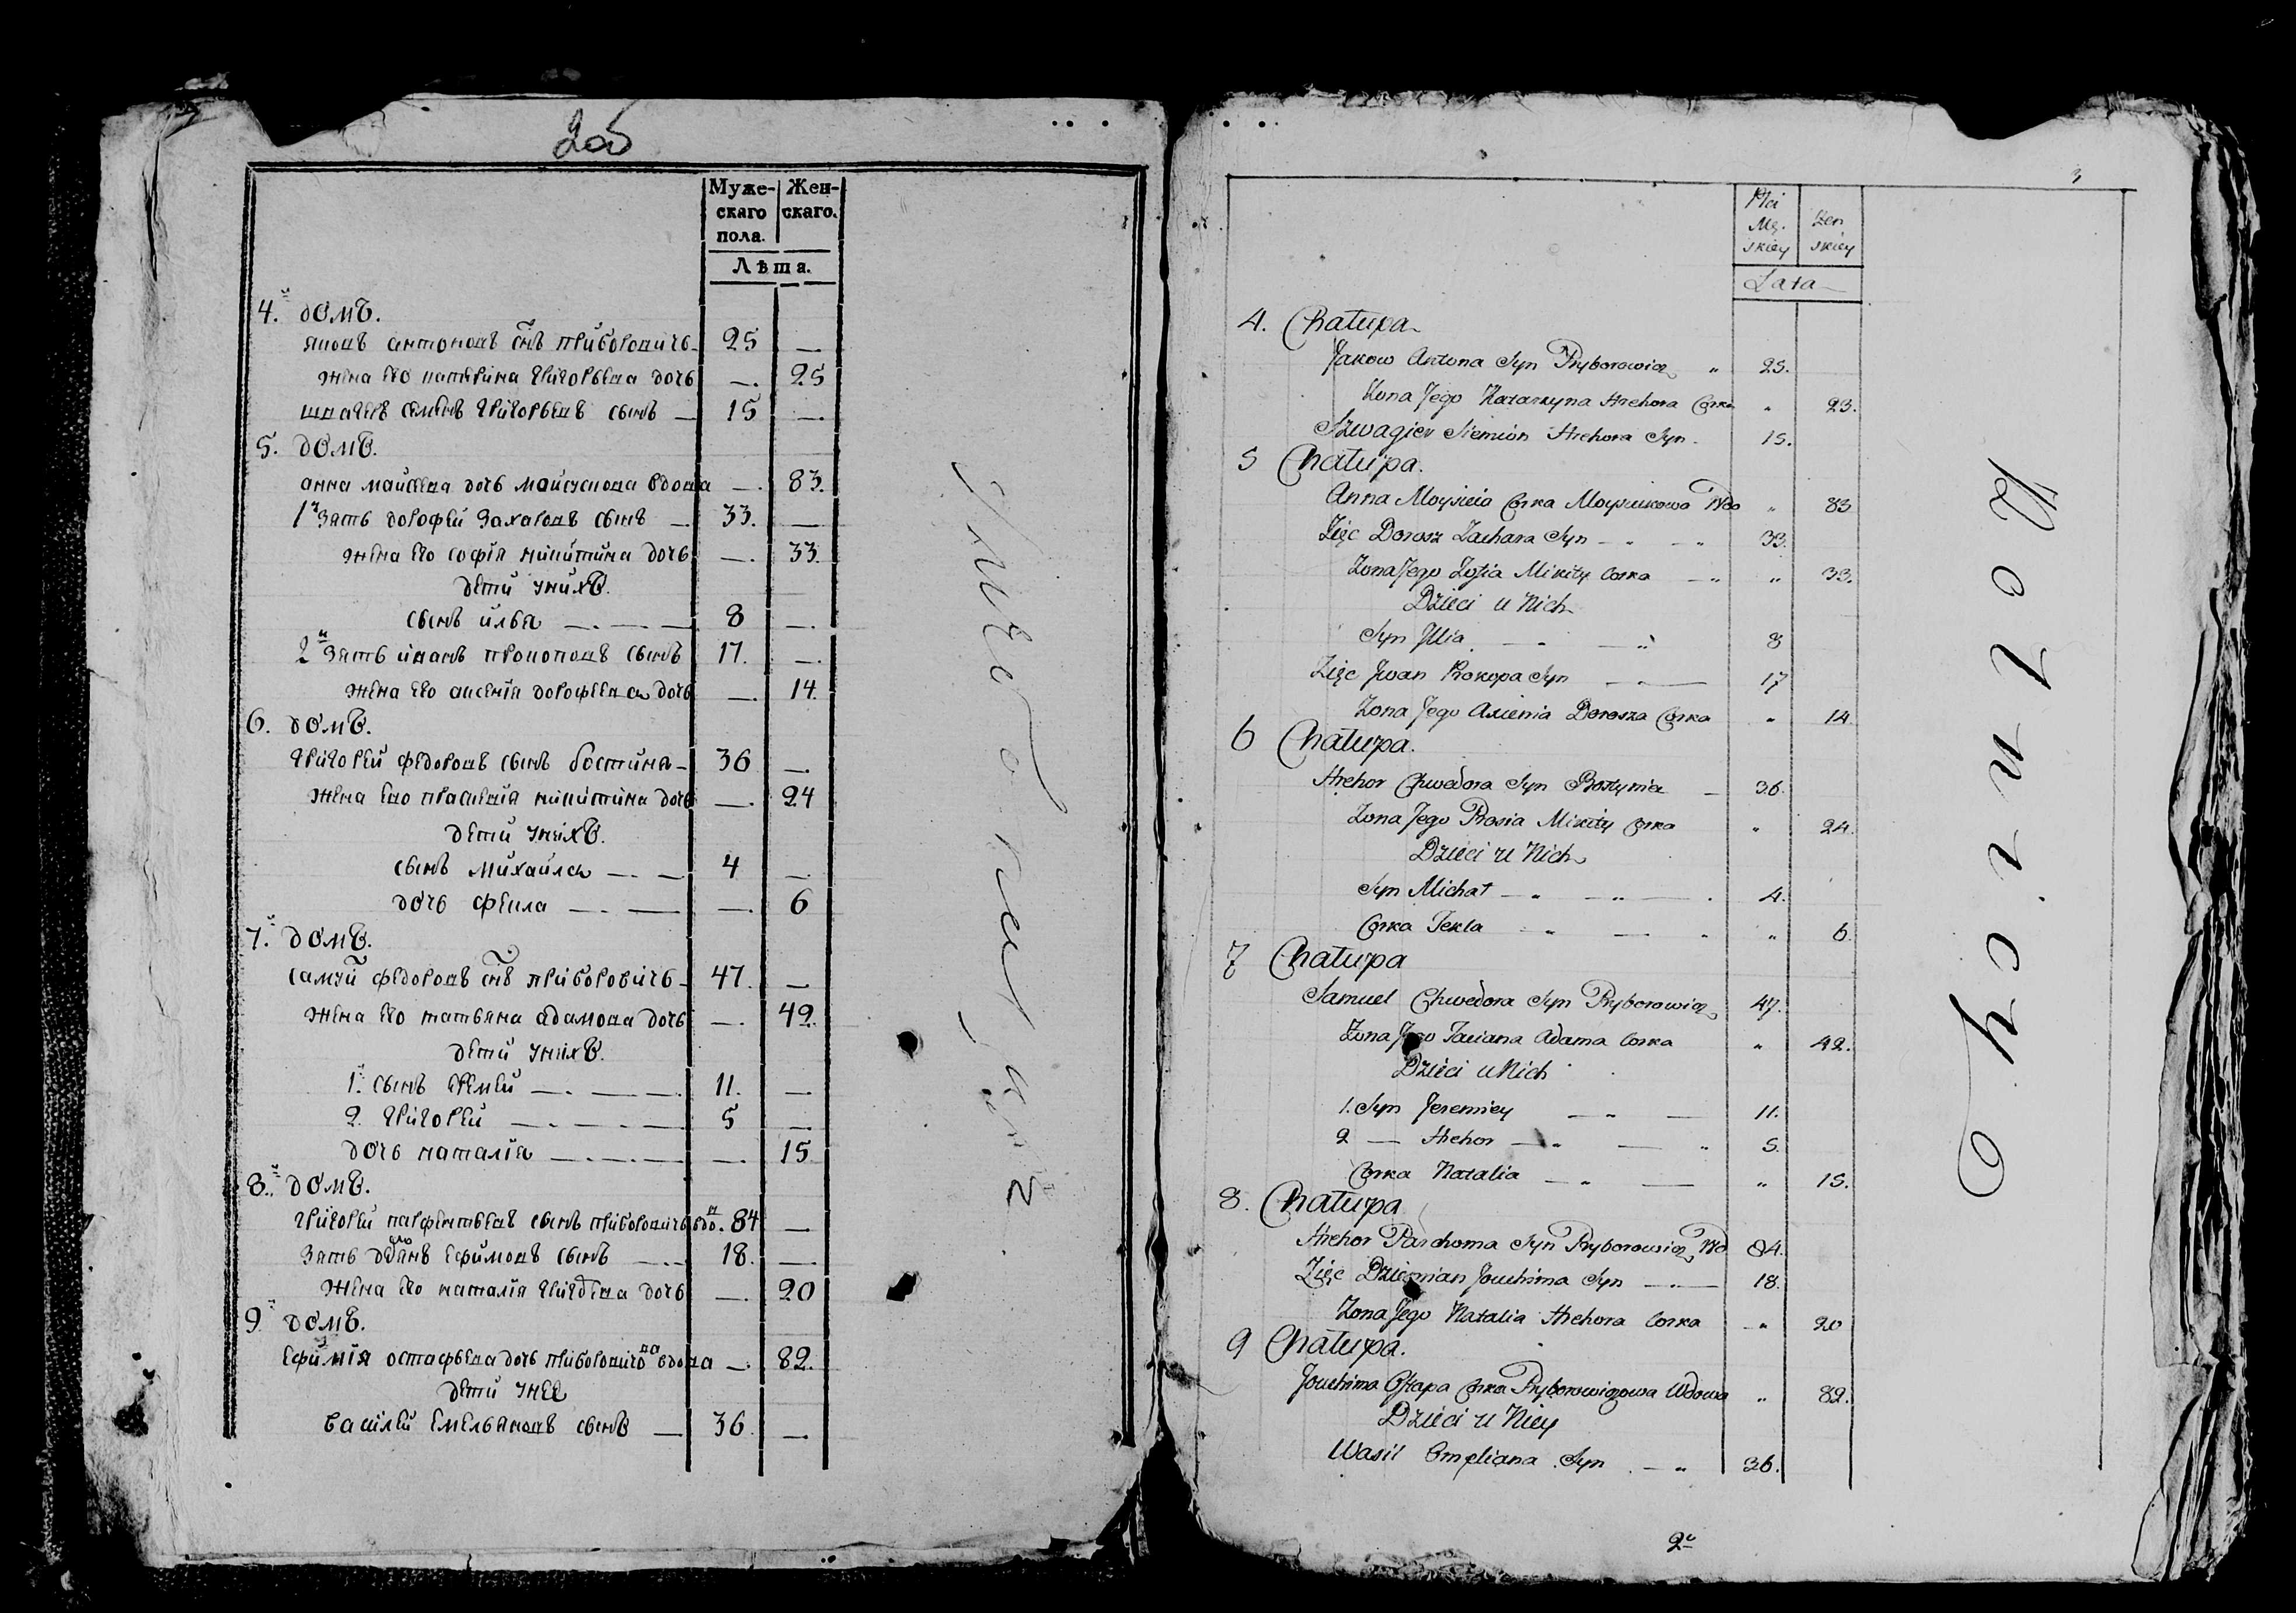 2об
Муже-
скаго
пола.
Жен-
скаго.
Лѣта.
4.й домъ.
яковъ антоновъ снъ приборовичъ — 25 —
жена его катерина григорьева дочь — 25
швагеръ семенъ григорьевъ сынъ — 15 —
5. домъ.
анна майсеева дочь майсукова вдова — 83.
1й зять дорофей захаровъ сынъ — 33. —
жена его софія микитина дочь — 33.
дети у нихъ.
сынъ илья — 8 —
2й зять иванъ прокоповъ сынъ 17. —
жена его аксенія дорофеева дочь — 14.
6. домъ.
григорей федоровъ сынъ бостина — 36 —
жена ево прасковія микитина дочь — 24
дети у нихъ.
сынъ михайла — 4 —
дочь фекла — 6
7.й домъ.
самуй федоровъ снъ прибировичъ — 47. —
жена его татьяна адамова дочь — 42.
дети у нихъ.
1.й сынъ еремей — 11. —
2. григорей — 5 —
дочь наталія — 15
8.й домъ.
григорей парфентьевъ сынъ прибировичъ вдов. 84 —
зять ефимовъ сынъ — 18. —
жена его наталія дочь — 20
9.й домъ.
ефимія остафьева дочь вдова — 82.
дети у нее
василей емельяновъ сынъ — 36 —
3
Płci
Mę-
skiey
Żeń
skiey
Lata
4. Chałupa
Jakow Antona Syn Pryborowicz „ 25.
Żona Jego Katarzyna Hrehora Corka „ 23.
Szwagier Siemion Hrehora Syn 15.
5 Chałupa.
Anna Moysieia Corka Moysiukowa Wdo „ 83
Zięc Dorosz Zachara Syn — „ — „ 33.
Żona Jego Zofia Mikity Corka — „ „ 33.
Dzieci u Nich
Syn Jllia — „ 8
Zięc Jwan Prokopa Syn — „ — 17
Żona Jego Axienia Dorosza Corka „ 14.
6 Chałupa.
Hrehor Chwedora Syn Bostynia — 36.
Żona Jego Prosia Mikity Corka „ 24.
Dzieci u Nich
Syn Michał — „ — „ — 4.
Corka Tekla „ — „ „ 6.
7 Chałupa
Samuel Chwedora Syn Pryborowicz 47.
Żona Jego Taciana Adama Corka „ 42.
Dzieci u Nich
1. Syn Jeremiey — „ — 11.
2 — Hrehor — „ — „ 5.
Corka Natalia — „ — „ 15.
8. Chałupa
Hrehor Parchoma Syn Pryborowicz Wd. 84.
Zięc Dziemian Jouchima Syn — „ — 18.
Żona Jego Natalia Hrehora Corka „ 20
9 Chałupa.
Jouchima Ostapa Corka Pryborowiczowa Wdowa „ 82.
Dzieci u Niey
Wasil Omeliana Syn — „ 36.
2й